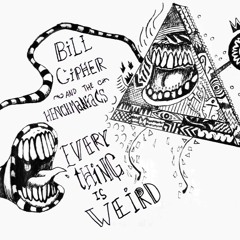 BILL
CIPHER
AND THE
HENCHMANIACS
EVERY
THING
IS
WEIRD